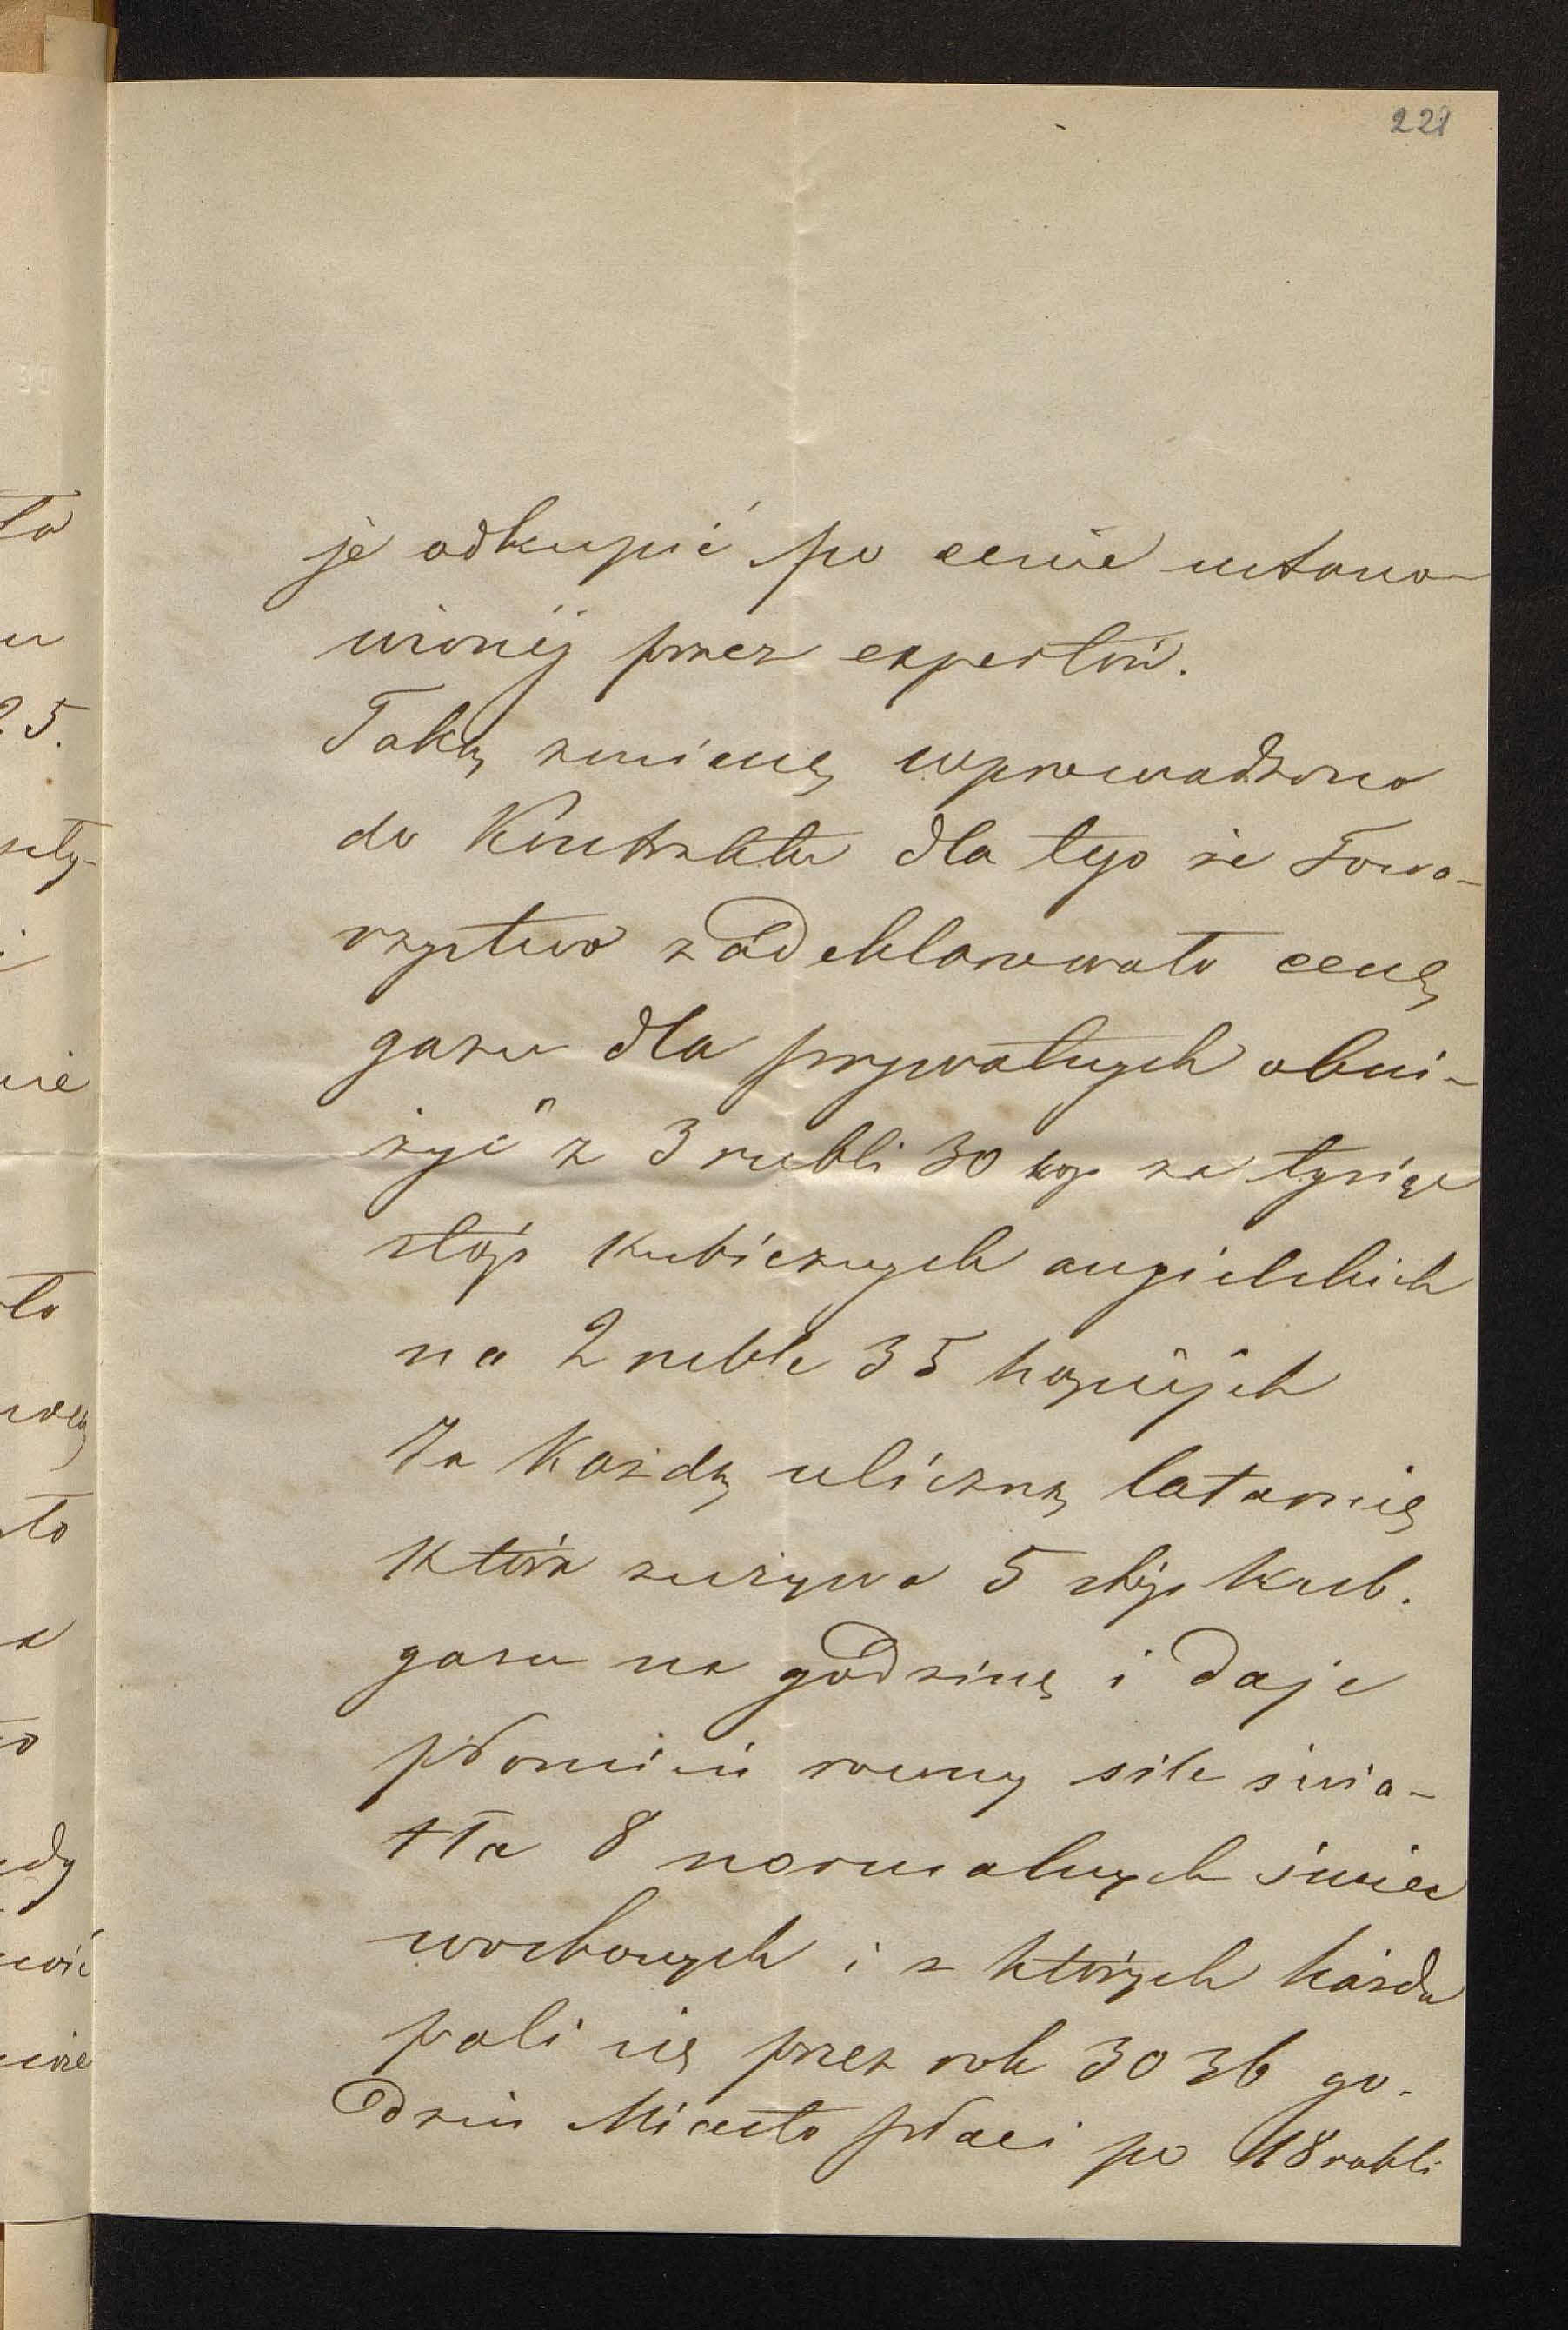 221
je odkupić po cenie ustano-
wionéj przez expertów.
Taką zmianę wprowadzono
do Kontraktu dla tego że Towa-
rzystwo zadeklarowało cenę
gazu dla prywatnych obni-
żyć z 3 rubli 30 kop za tysiąc
stóp kubicznych angielskich
na 2 ruble 35 kopiejek
Za Każdą uliczną latarnię
która zużywa 5 stóp kub.
gazu na godzinę i daje
płomień rowny sile świa-
tła 8 normalnych świec
woskowych i z których każda
pali się przez rok 3036 go-
dzin Miasto płaci po 18 rubli